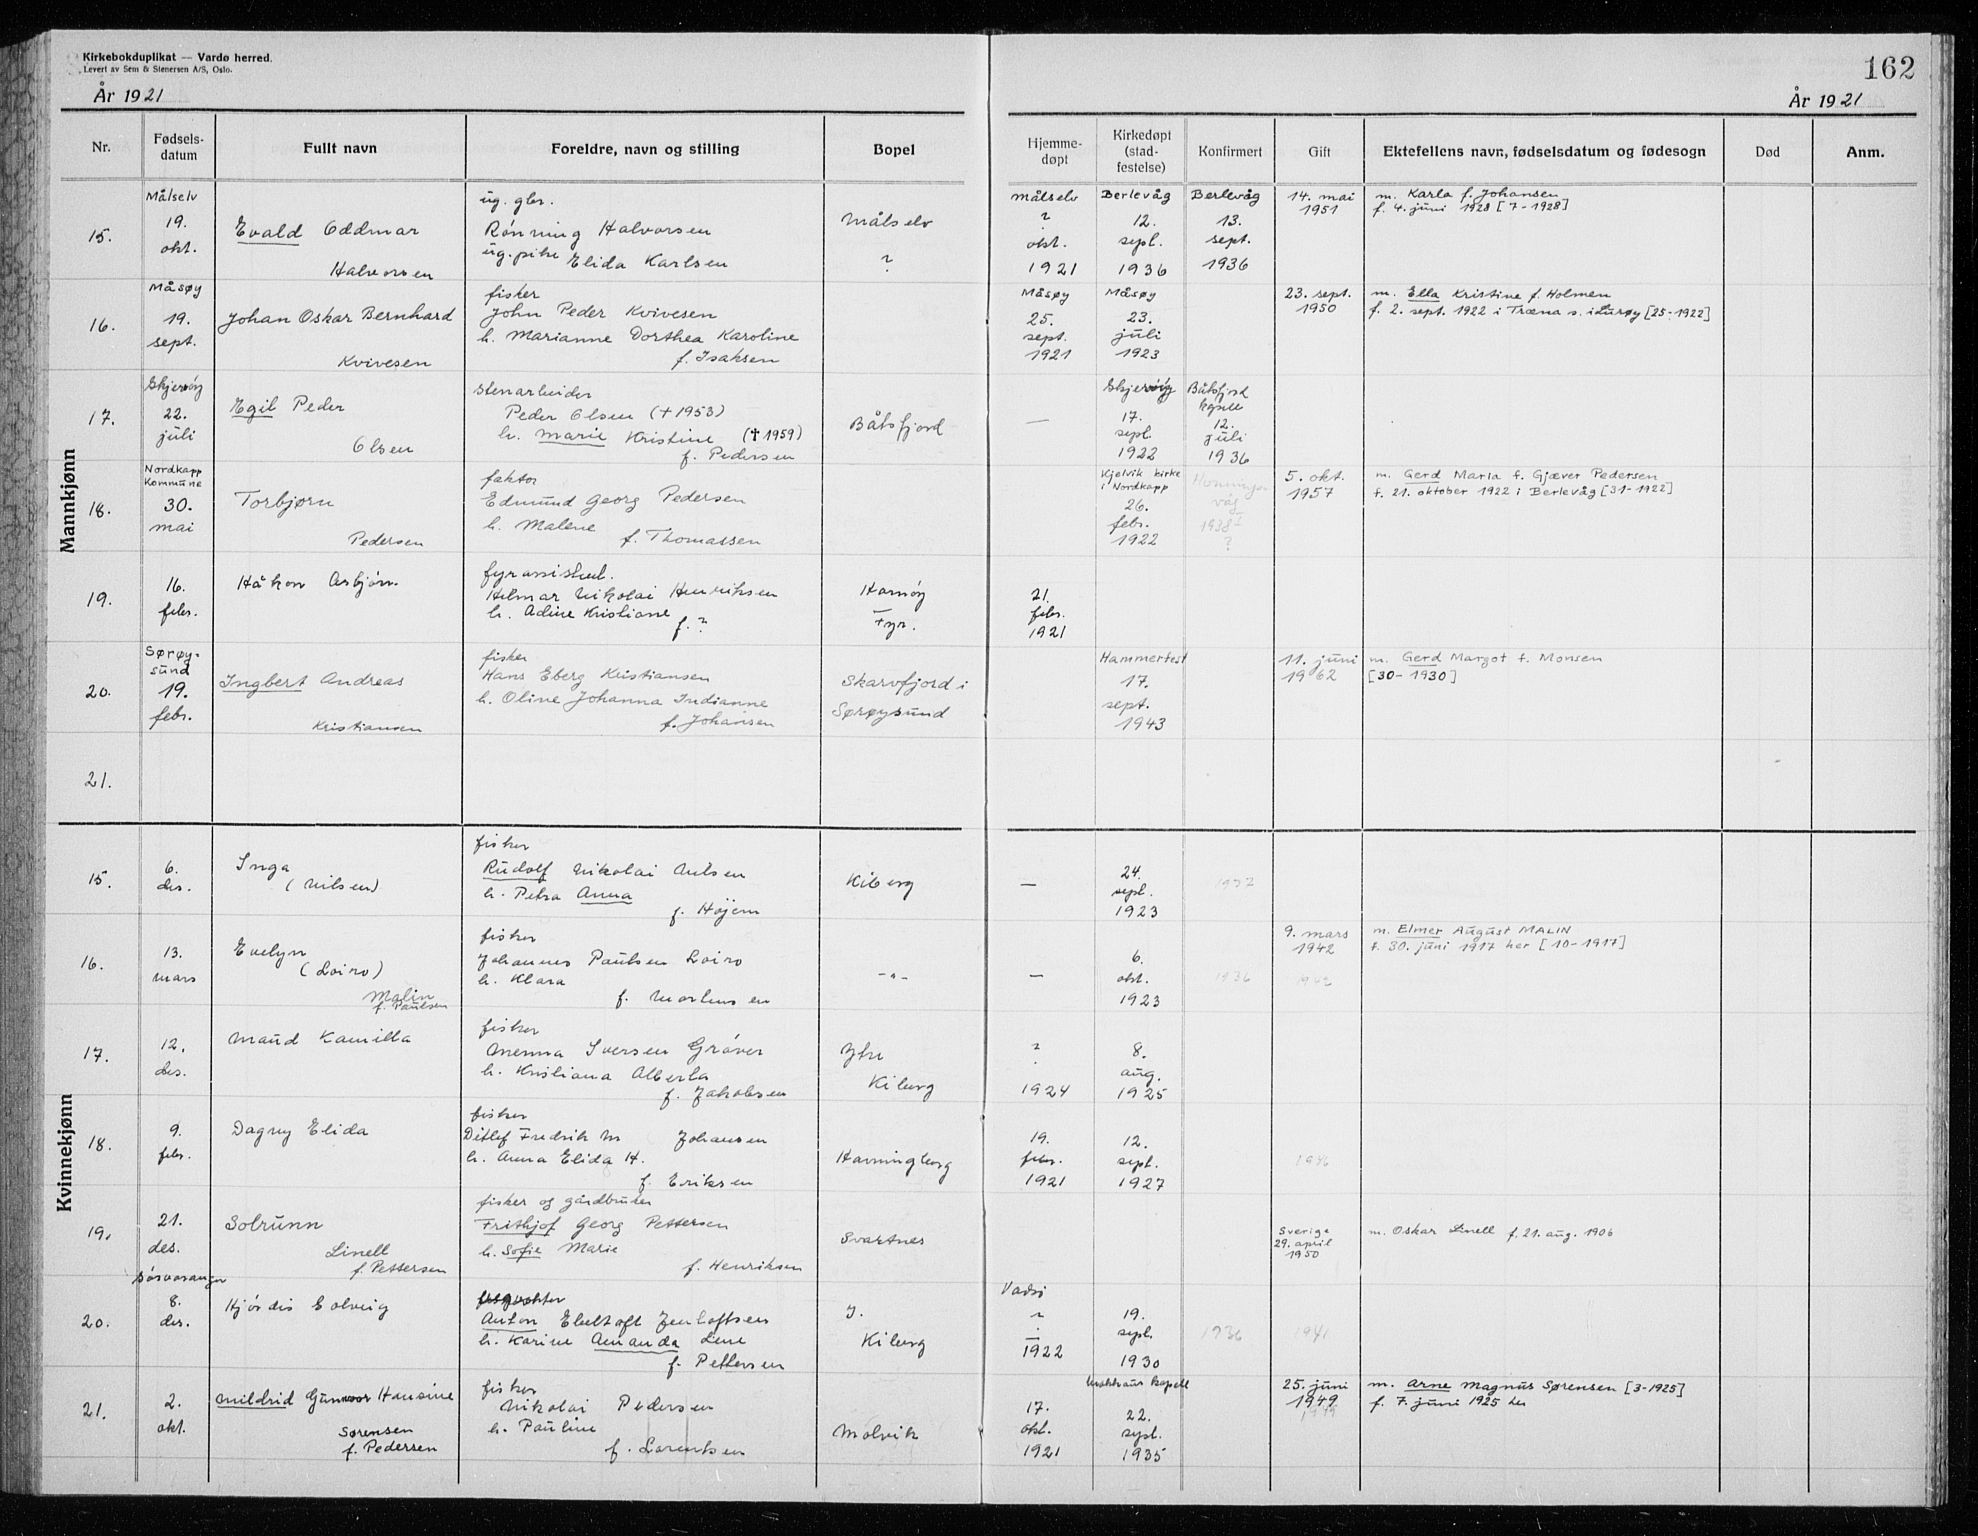 Kirkebokduplikat — Vardø herred.
Levert av Sem & Stenersen A/S, Oslo.
År 1921
162
År 1921
Nr.
Fødsels-
datum
Fullt navn
Foreldre, navn og stilling
Bopel
Hjemme-
døpt
Kirkedøpt
(stad-
festelse)
Konfirmert
Gift
Ektefellens navn, fødselsdatum og fødesogn
Død
Anm.
Mannkjønn
15.
Målselv
19.
okt.
Evald Oddmar
Halvorsen
ug. gbr.
Rønning Halvorsen
ug. pike Elida Karlsen
Målselv
?
Målselv
?
okt.
1921
Berlevåg
12.
sept.
1936
Berlevåg
13.
sept.
1936
14. mai
1951
m. Karla f. Johansen
f. 4. juni 1928 [7-1928]
16.
Måsøy
19.
sept.
Johan Oskar Bernhard
Kvivesen
fisker
John Peder Kvivesen
h. Marianne Dorthea Karoline
f. Isaksen
Måsøy
25.
sept.
1921
Måsøy
23.
juli
1923
23. sept.
1950
m. Ella Kristine f. Holmen
f. 2. sept. 1922 i Træna s. i Lurøy [25-1922]
17.
Skjervøy
22.
juli
Egil Peder
Olsen
stenarbeider
Peder Olsen (†1953)
h. Marie Kristine (†1959)
f. Pedersen
Båtsfjord
—
Skjervøy
17.
sept.
1922
Båtsfjord
kapell
12.
juli
1936
18.
Nordkapp
Kommune
30.
mai
Torbjørn
Pedersen
faktor
Edmund Georg Pedersen
h. Malene
f. Thomassen
Kjelvik kirke
i Nordkapp
26.
febr.
1922
Honnings-
våg
1938
?
5. okt.
1957
m. Gerd Maria f. Gjæver Pedersen
f. 21. oktober 1922 i Berlevåg [31-1922]
19.
16.
febr.
Håkon Asbjørn.
fyrassistent.
Hilmar Nikolai Henriksen
h. Adine Kristiane
f. ?
Hornøy
Fyr.
21.
febr.
1921
20.
Sørøy-
sund
19.
febr.
Ingbert Andreas
Kristiansen
fisker
Hans Eberg Kristiansen
h. Olive Johanna Indianne
f. Johansen
Skarvfjord i
Sørøysund
Hammerfest
17.
sept.
1943
11. juni
1962
m. Gerd Margot f. Monsen
[30-1930]
21.
Kvinnekjønn
15.
6.
des.
Inga
(Nilsen)
fisker
Rudolf Nikolai Nilsen
h. Petra Anna
f. Højem
Kiberg
—
24.
sept.
1923
1937
16.
13.
mars
Evelyn
(Loiro)
Malin
f. Paulsen
fisker
Johannes Paulsen Loiro
h. Klara
f. Mortensen
-"-
—
6.
okt.
1923
1936
1942
9. mars
1942
m. Elmer August MALIN
f. 30. juni 1917 her [10-1917]
17.
12.
des.
Maud Kamilla
fisker
Menna Iversen Grøver
h. Kristiana Alberta
f. Jakobsen
Ytre
Kiberg
?
1924
8.
aug.
1925
18.
9.
febr.
Dagny Elida
fisker
Ditlef Fredrik M Johansen
h. Anna Elida H.
f. Eriksen
Havningberg
19.
febr.
1921
12.
sept.
1927
1946
19.
21.
des.
Solrunn
Linell
f. Pettersen
fisker og gårdbruker
Frithjof Georg Pettersen
h. Sofie Marie
f. Henriksen
Svartnes
Sverige
29. april
1950
m. Oskar Linell f. 21. aug. 1906
20.
Sørvaranger
8.
des.
Hjørdis Solveig
Anton Ebeltoft Jentoftsen
h. Karine Amanda Lene
f. Pettersen
I.
Kiberg
Vadsø
?
—
1922
19.
sept.
1930
1936
1941
21.
2.
okt.
Mildrid Gunvor Hansine
Sørensen
f. Pedersen
fisker
Nikolai Pedersen
h. Pauline
f. Lorentsen
Molvik
17.
okt.
1921
Makkaur kapell
22.
sept.
1935
25. juni
1949
1949
m. Arne Magnus Sørensen [3-1925]
f. 7. juni 1925 her